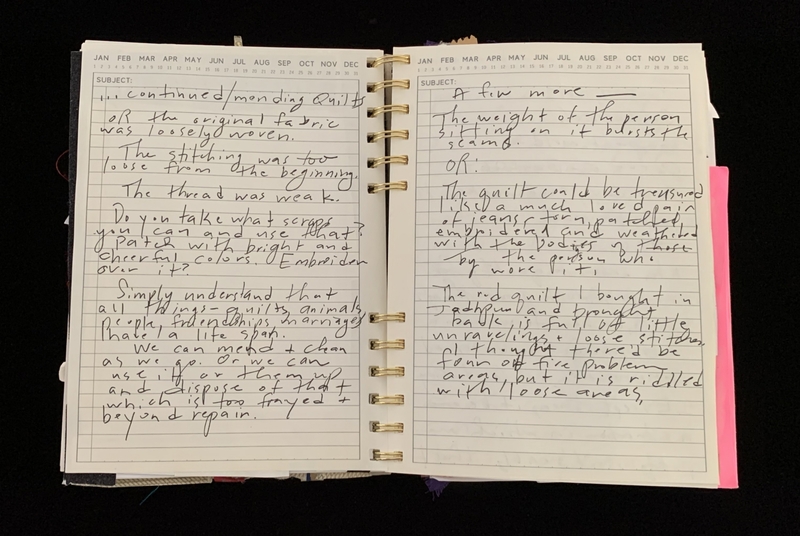 JAN FEB MAR APR MAY JUN JUL AUG SEP OCT NOV DEC
SUBJECT:
... continued/mending Quilts
OR the original fabric
was loosely woven.
The stitching was too
loose from the beginning.
The thread was weak.
Do you take what scraps
you can and use that?
Patch with bright and
cheerful colors. Embroider
over it?
Simply understand that
all things - quilts, animals,
people, friendships, marriages
have a life span.
We can mend + clean
as we go. Or we can
use it or them up
and dispose of that
which is too frayed +
beyond repair.
JAN FEB MAR APR MAY JUN JUL AUG SEP OCT NOV DEC
SUBJECT:
A few more
The weight of the person
sitting on it bursts the
seams.
OR:
The quilt could be treasured
like a much loved pair
of jeans, torn, patched,
embroidered and weathered
with the bodies of those
by the person who
wore it.
The red quilt I bought in
Jodhpur and brought
back is full of little
unravelings + loose stitches,
I thought there'd be
four or five problem
areas, but it is riddled
with loose areas,